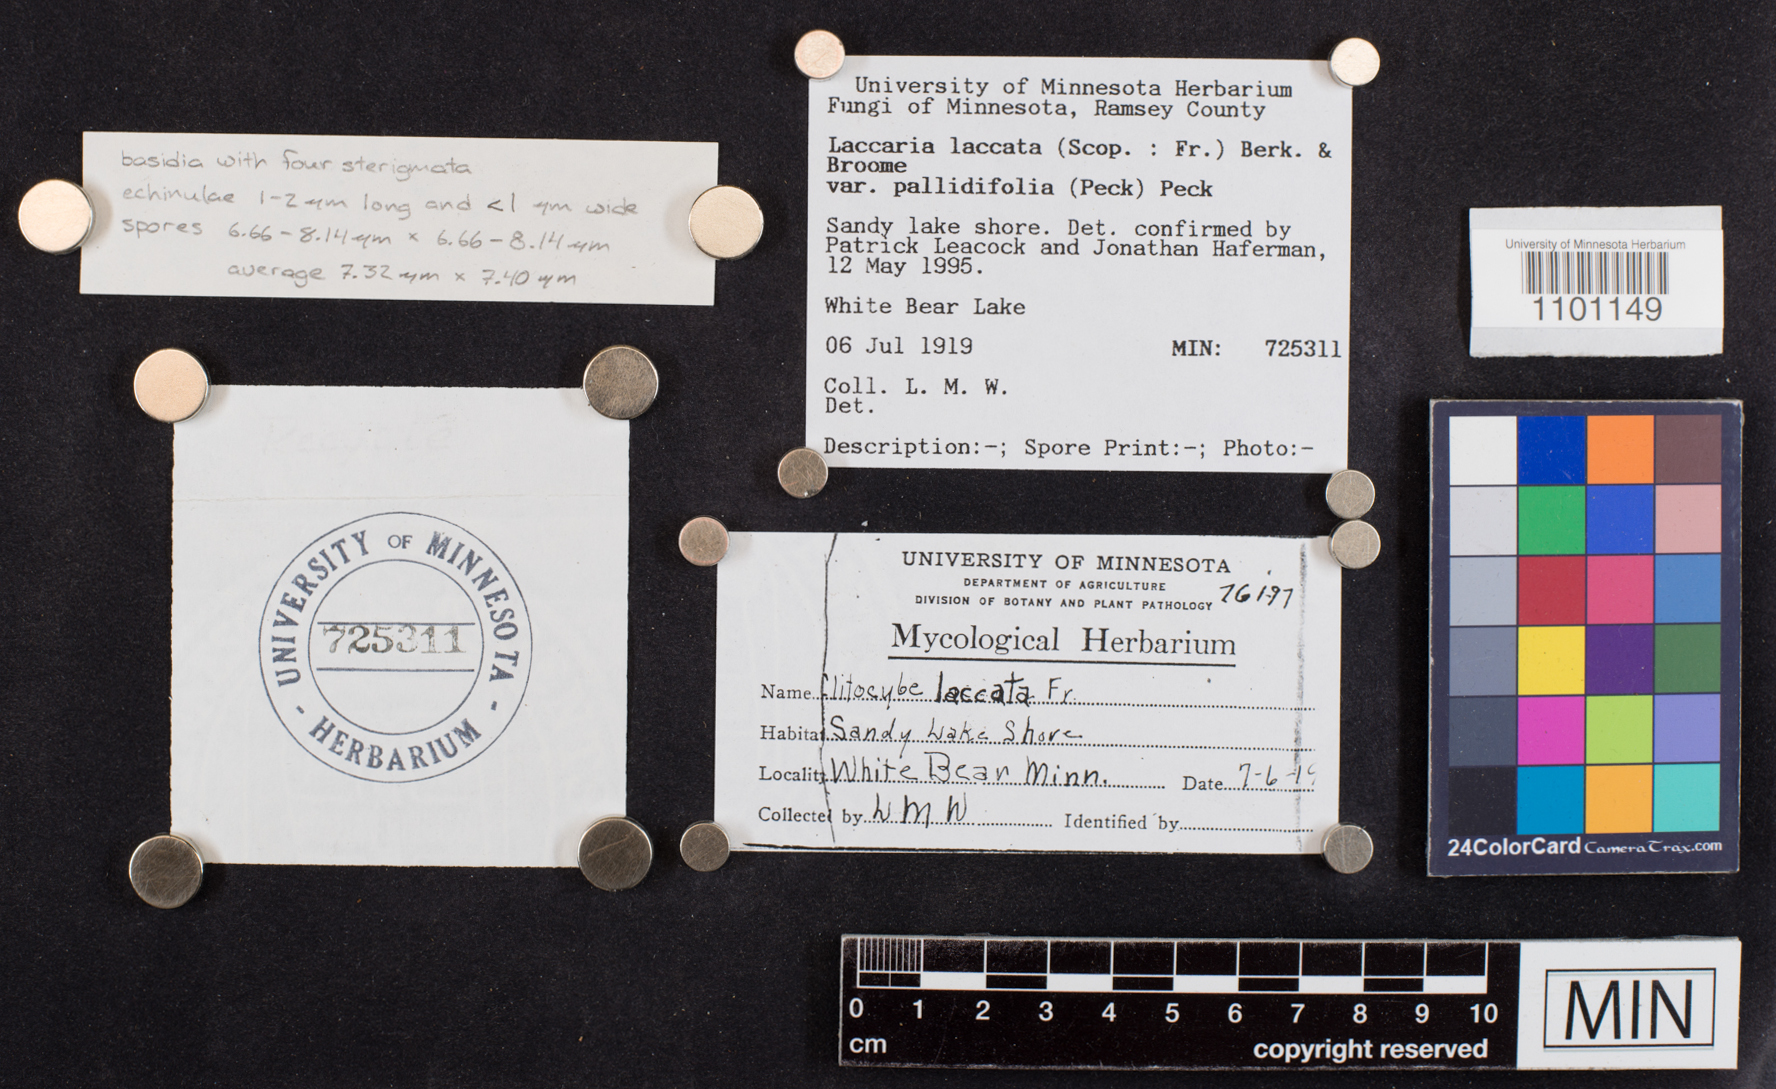 basidia with four sterigmata
echinulae 1-2 µm long and <1 µm wide
spores 6.66-8.14 µm × 6.66-8.14 µm
average 7.32 µm × 7.40 µm
University of Minnesota Herbarium
Fungi of Minnesota, Ramsey County
Laccaria laccata (Scop. : Fr.) Berk. &
Broome
var. pallidifolia (Peck) Peck
Sandy lake shore. Det. confirmed by
Patrick Leacock and Jonathan Haferman,
12 May 1995.
White Bear Lake
06 Jul 1919 MIN: 725311
Coll. L. M. W.
Det.
Description:-; Spore Print:-; Photo:-
University of Minnesota Herbarium
1101149
UNIVERSITY OF MINNESOTA
725311
- HERBARIUM -
UNIVERSITY OF MINNESOTA
DEPARTMENT OF AGRICULTURE
DIVISION OF BOTANY AND PLANT PATHOLOGY 76197
Mycological Herbarium
Name Clitocybe laccata Fr.
Habitat Sandy Lake Shore
Locality White Bear Minn. Date 7-6-19
Collected by L M W Identified by
24ColorCard CameraTrax.com
0 1 2 3 4 5 6 7 8 9 10
cm copyright reserved
MIN